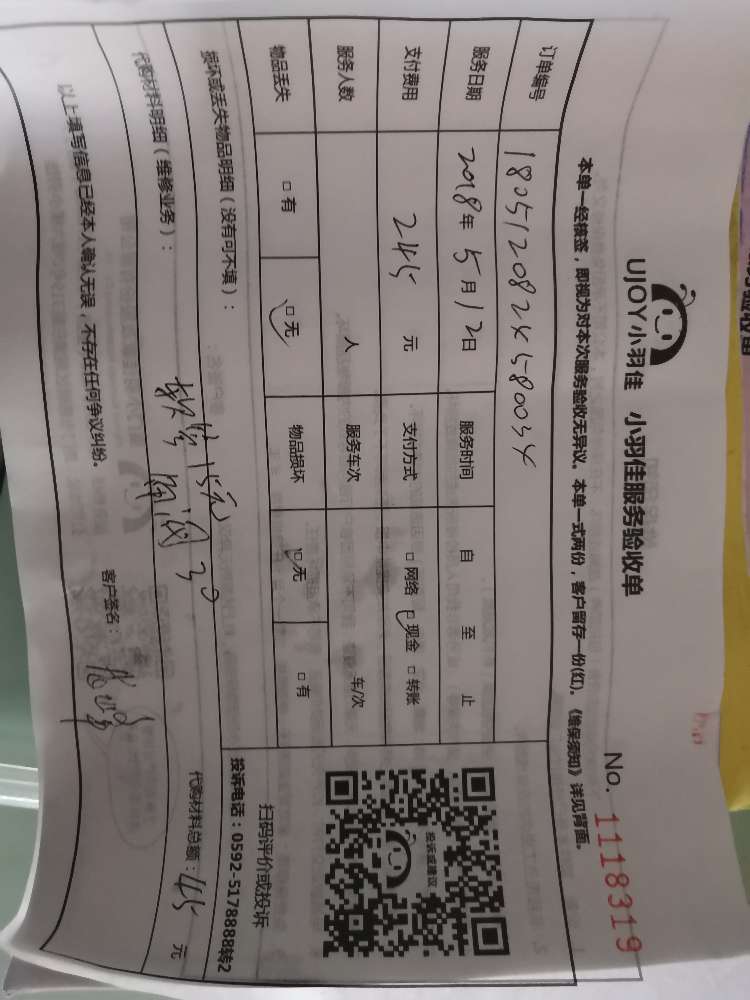 UJOY小羽佳 小羽佳服务验收单
No. 1118319
本单一经核签，即视为对本次服务验收无异议。本单一式两份，客户留存一份(红)。《维保须知》详见背面。
订单编号
服务日期 2018年5月12日 服务时间 自 至 止
支付费用 245 元 支付方式 □网络 □现金 □转账
服务人数 人 服务车次 车/次
物品丢失 □有 □无 物品损坏 □无 □有
损坏或丢失物品明细（没有可不填）：
扫码评价或投诉
投诉电话：0592-5178888转2
投诉或建议
代购材料明细（维修业务）：
15元
30
代购材料总额：45 元
以上填写信息已经本人确认无误，不存在任何争议纠纷。
客户签名：